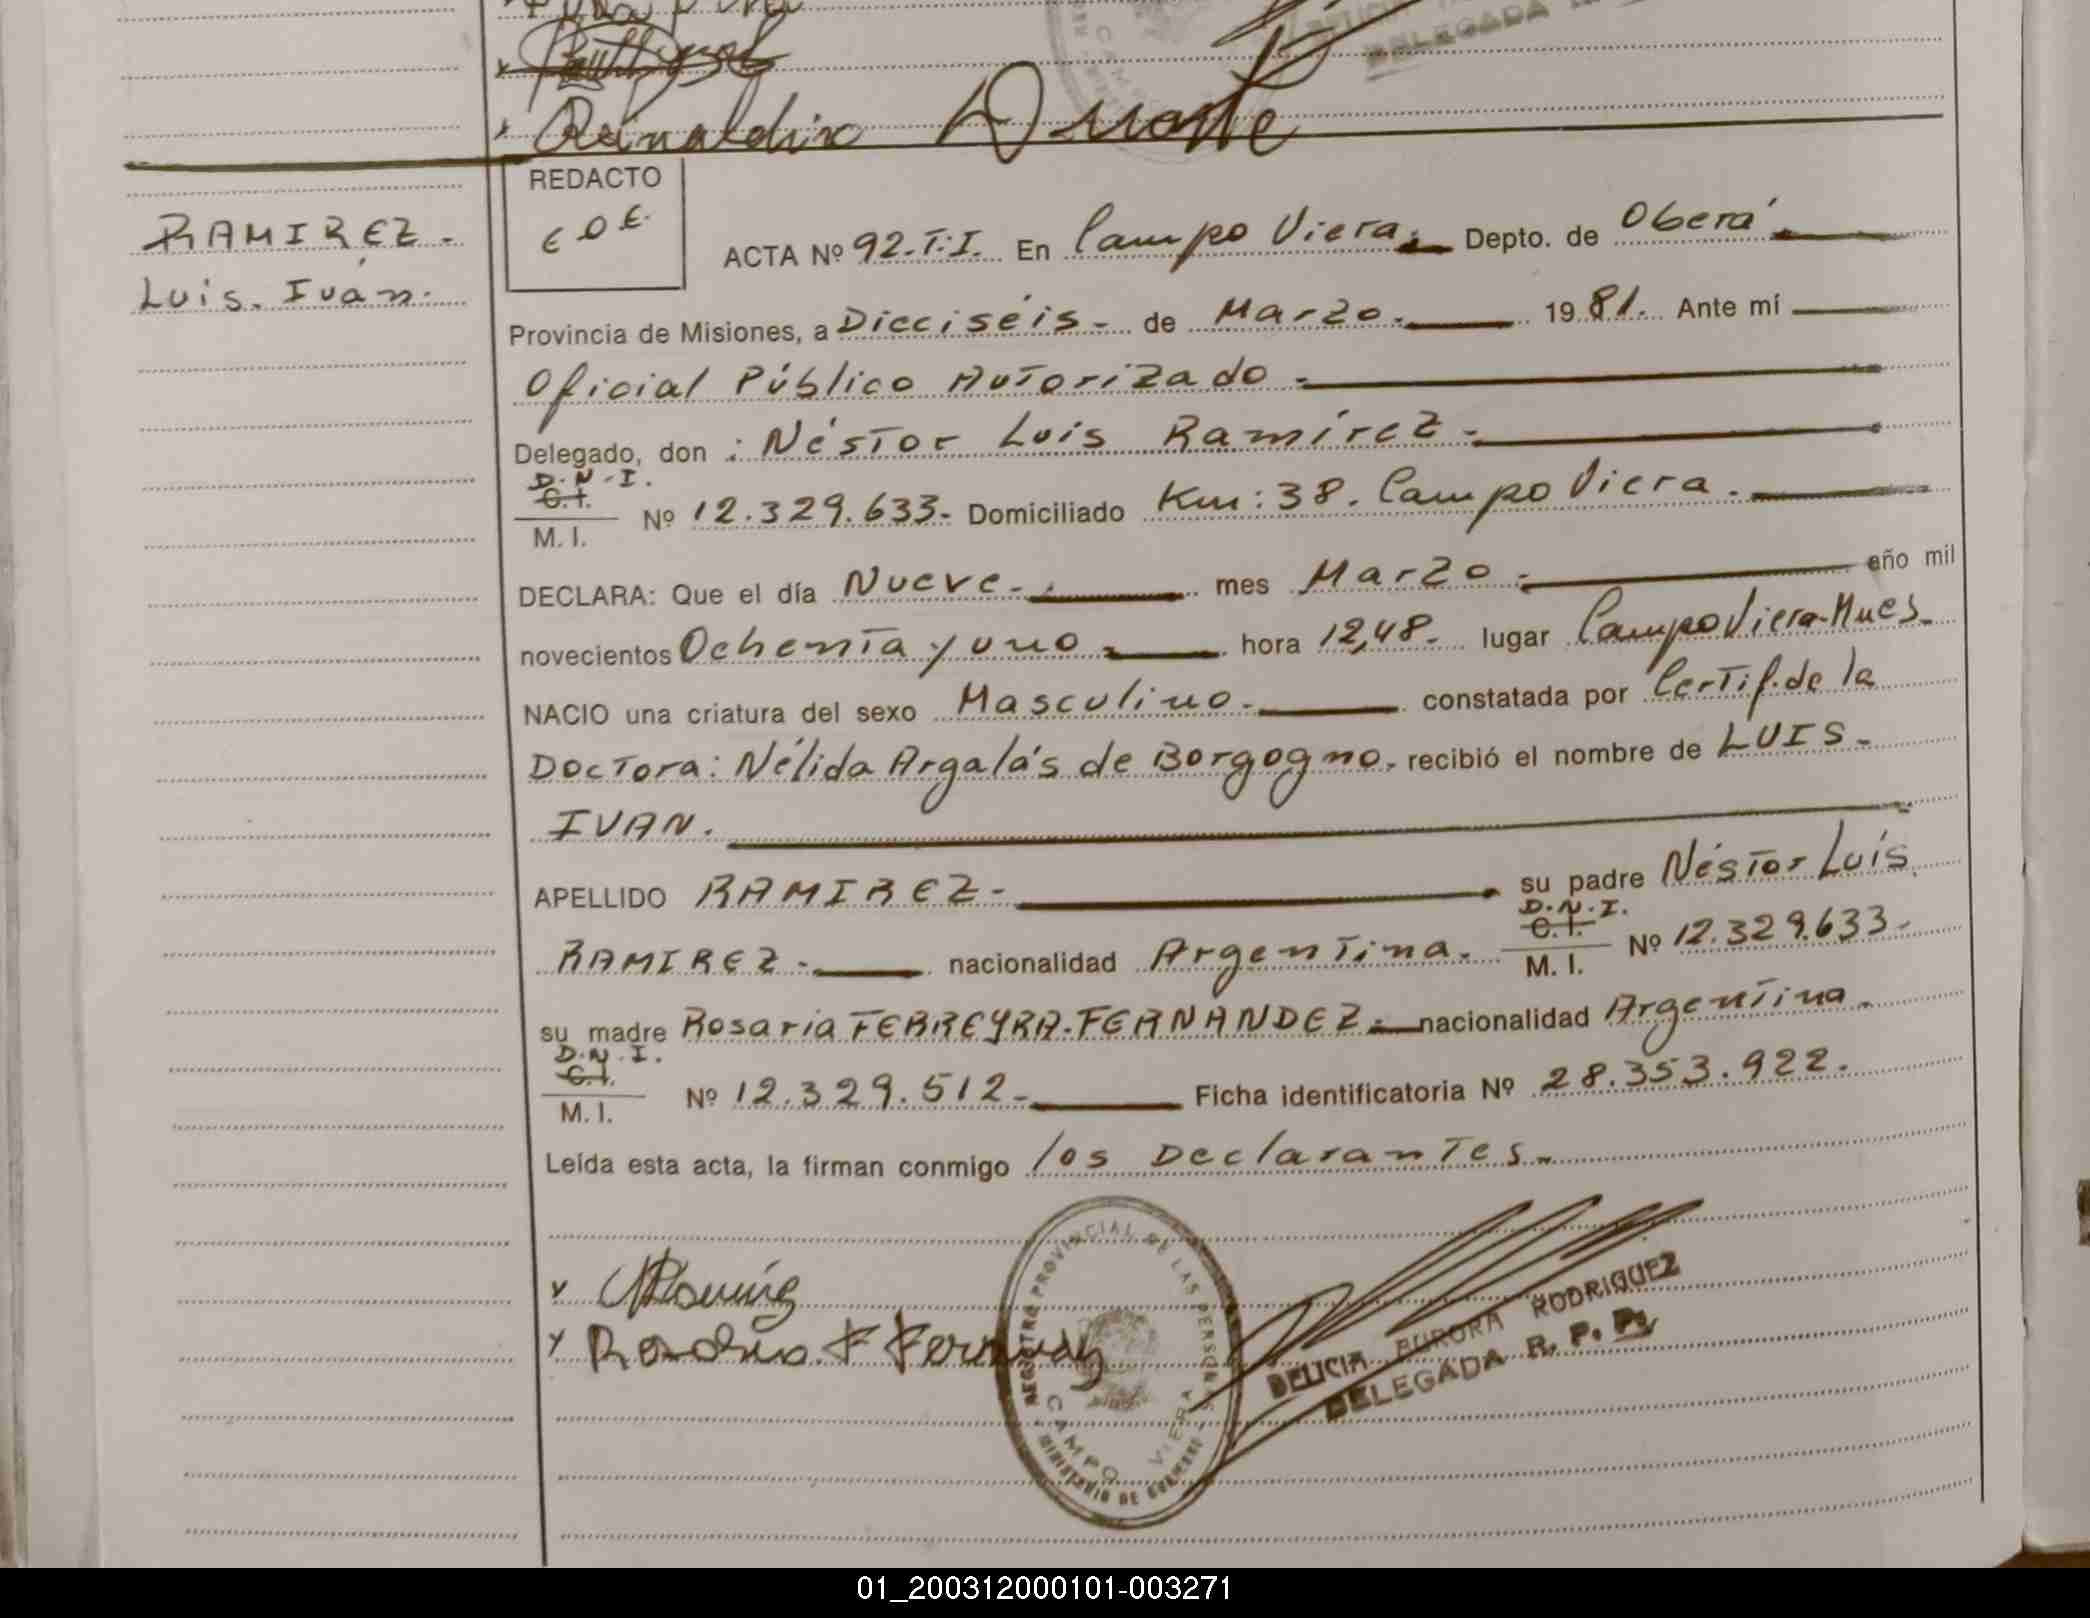 Reinaldino Duarte
DELEGADA
REDACTO
E D E.
RAMIREZ.
Luis. Iván.
ACTA Nº 92.T.I. En Campo Viera. Depto. de Oberá
Provincia de Misiones, a Dieciséis- de Marzo. 1981. Ante mí
Oficial Público Autorizado-
Delegado, don : Néstor Luis Ramírez-
D.N.I.
C.I.
M. I. Nº 12.329.633- Domiciliado Km: 38. Campo Viera.
DECLARA: Que el día Nueve- mes Marzo. año mil
novecientos Ochenta y uno hora 12,48- lugar Campo Viera-Mnes.
NACIO una criatura del sexo Masculino- constatada por Certif. de la
Doctora: Nélida Argalás de Borgogno. recibió el nombre de LUIS-
IVAN.
APELLIDO RAMIREZ- su padre Néstor Luis
RAMIREZ- nacionalidad Argentina. D.N.I.
C.I.
M. I. Nº 12.329.633-
su madre Rosaria FERREYRA-FERNANDEZ- nacionalidad Argentina.
D.N.I.
C.I.
M. I. Nº 12.329.512- Ficha identificatoria Nº 28.353.922.
Leída esta acta, la firman conmigo los Declarantes-
REGISTRO PROVINCIAL DE LAS PERSONAS
CAMPO VIERA
MINISTERIO DE GOBIERNO
DELICIA AURORA RODRIGUEZ
DELEGADA R. P. P.
01_200312000101-003271